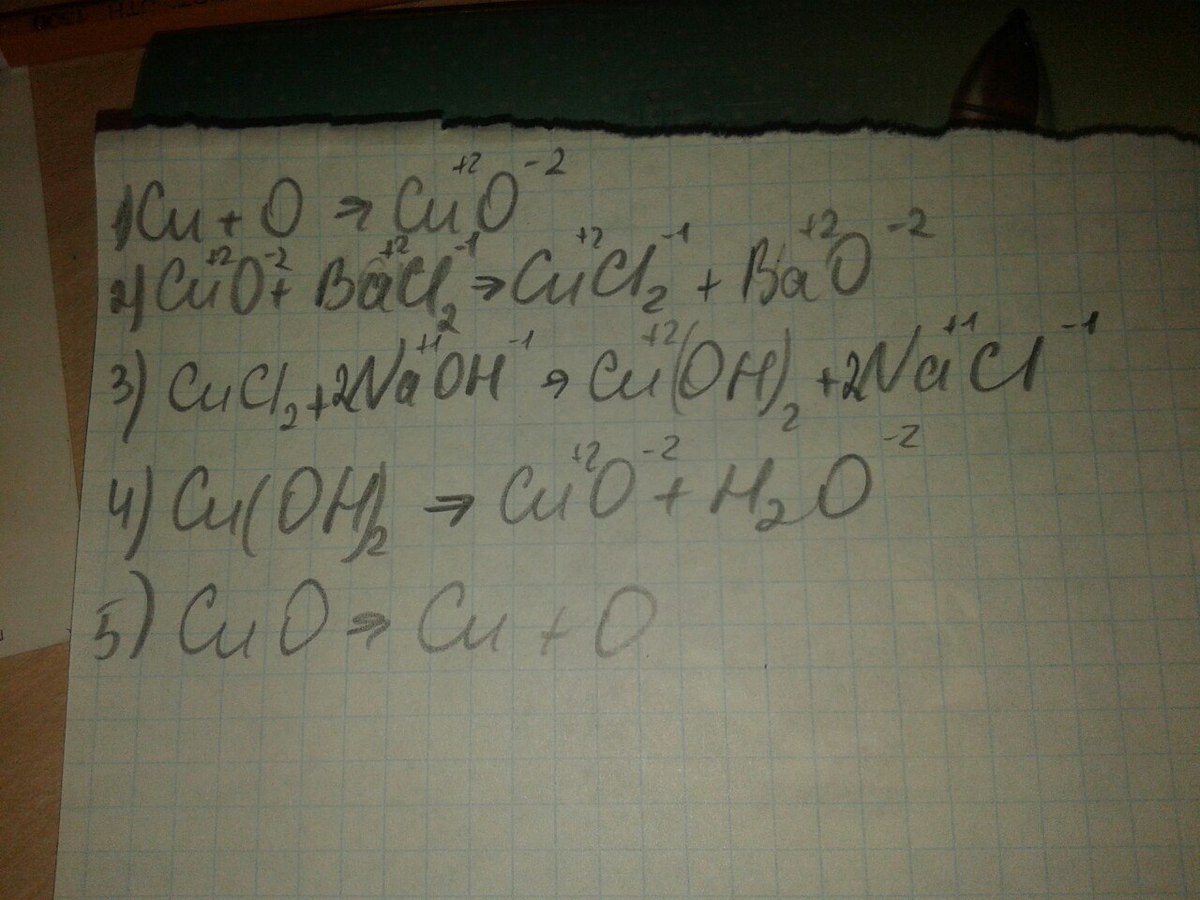 1) Cu + O → Cu⁺²O⁻²
2) Cu⁺²O⁻² + Ba⁺²Cl₂⁻¹ → Cu⁺²Cl₂⁻¹ + Ba⁺²O⁻²
3) CuCl₂ + 2Na⁺¹OH⁻¹ → Cu⁺²(OH)₂ + 2Na⁺¹Cl⁻¹
4) Cu(OH)₂ → Cu⁺²O⁻² + H₂O⁻²
5) CuO → Cu + O